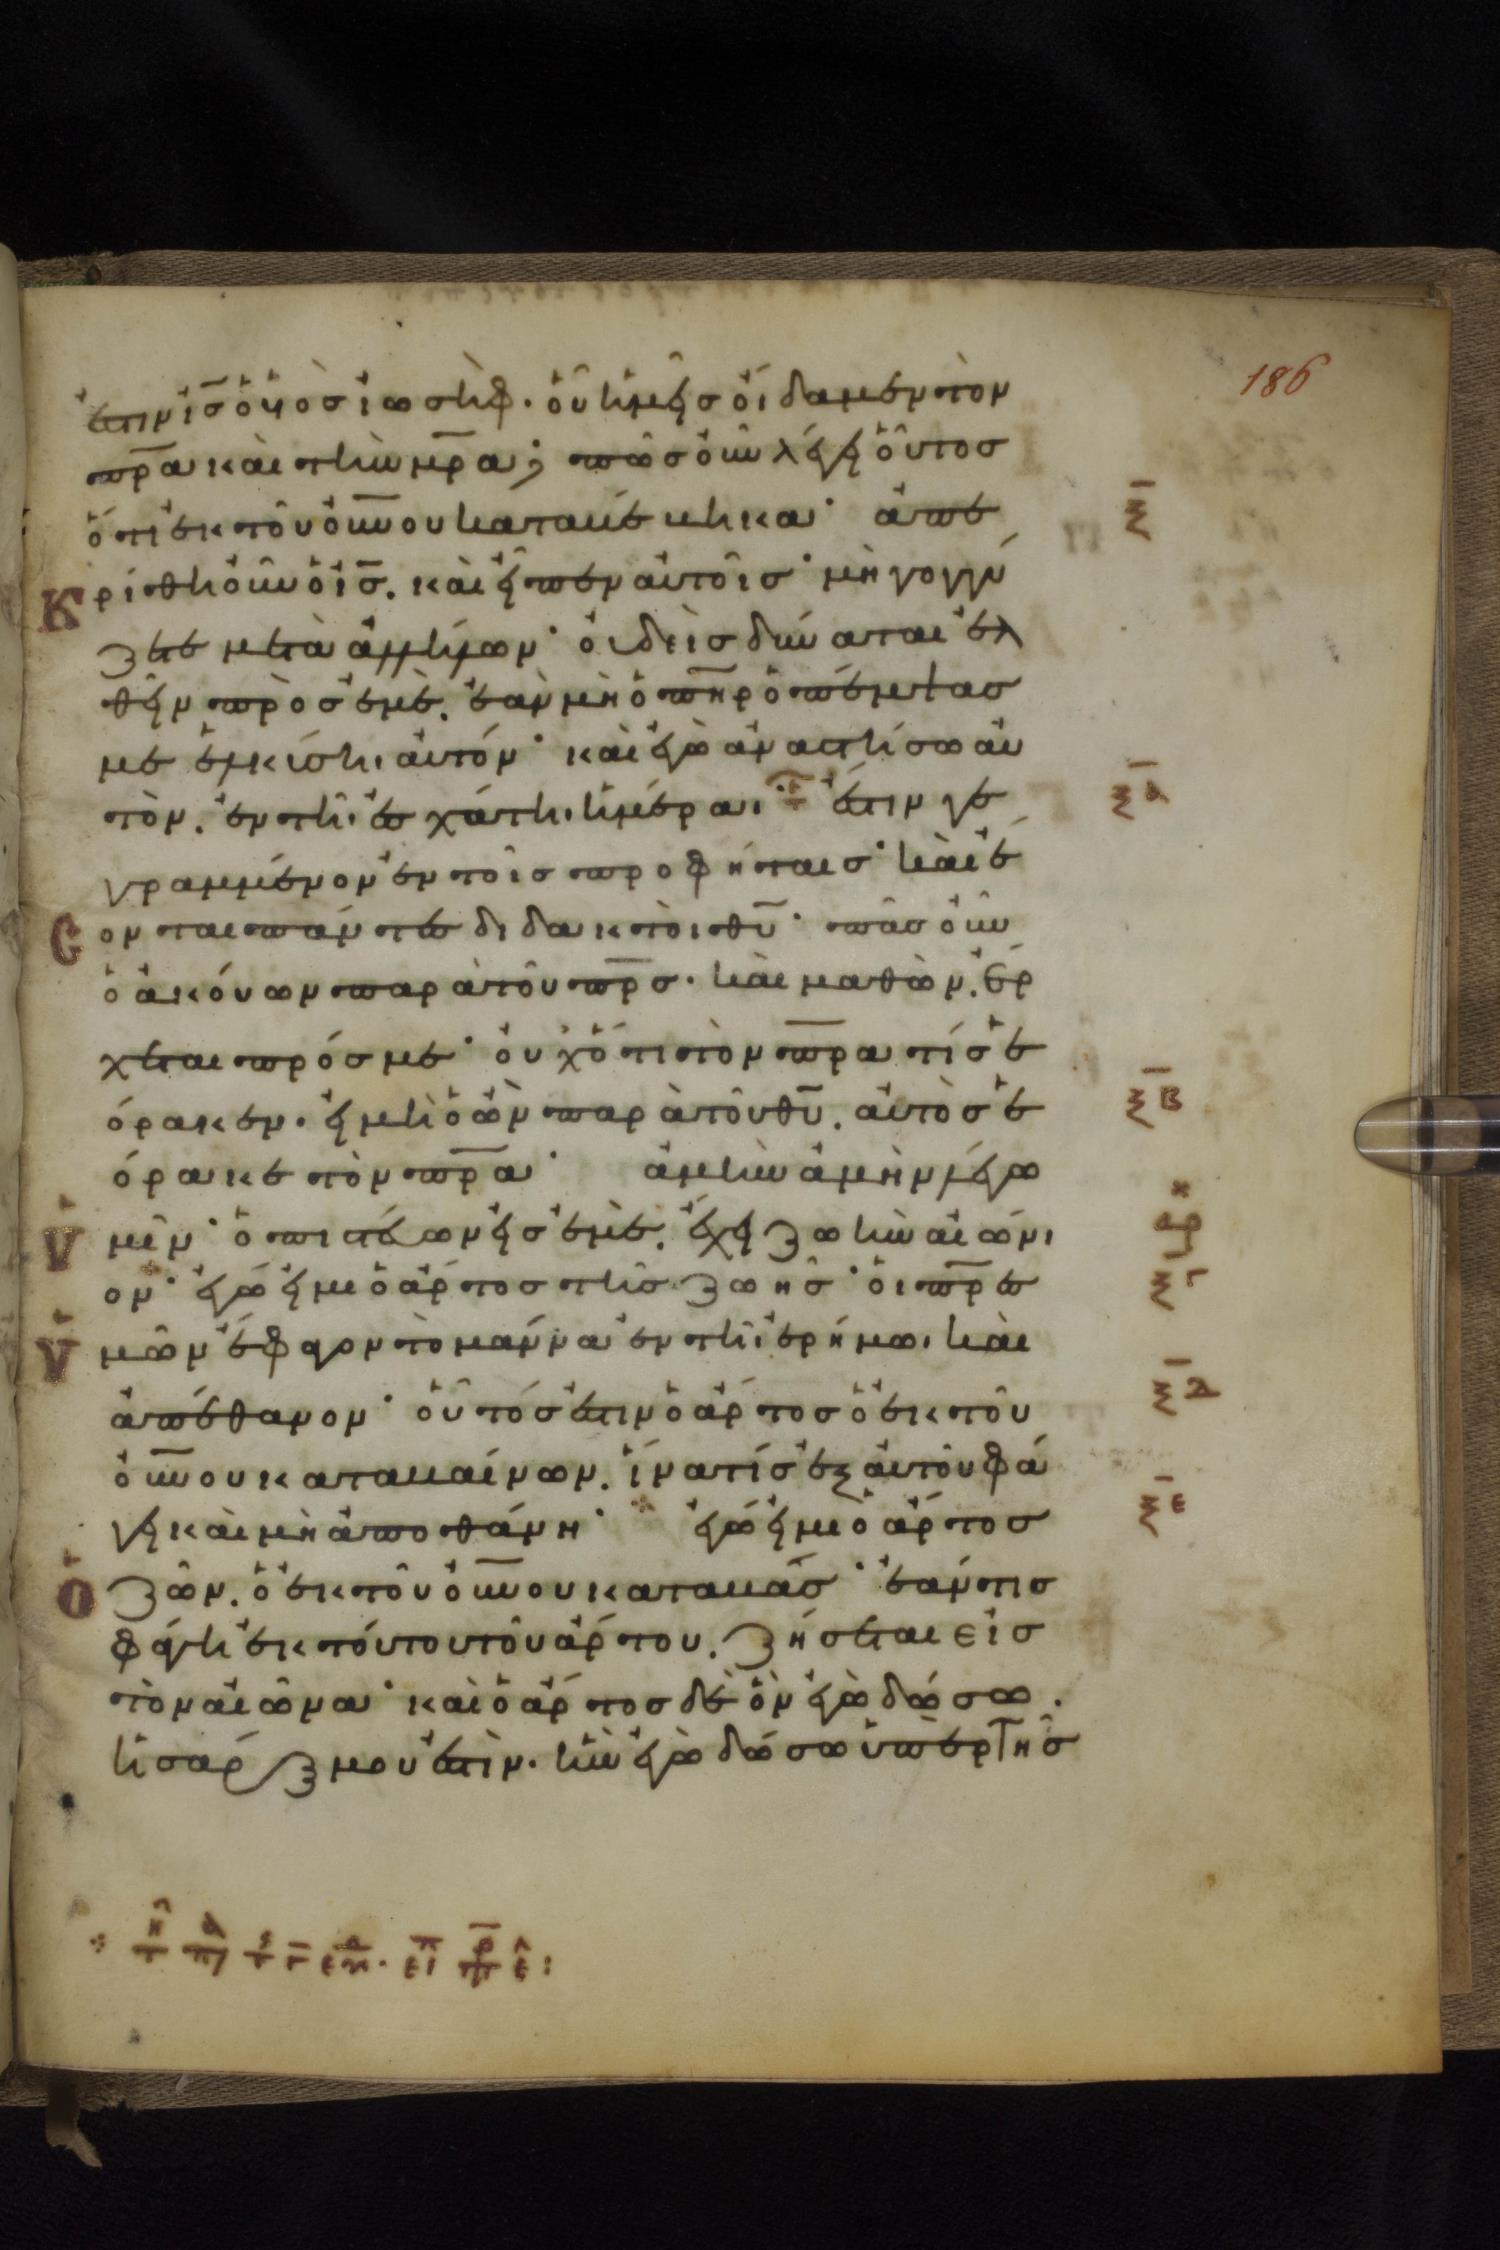 ἐστιν ις̅ ὁ υἱὸς ἰωσὴφ· οὗ ἡμεῖς οἴδαμεν τὸν
πρ̅α καὶ τὴν μρ̅α; πῶς οὖν λέγει οὗτος
ὅτι ἐκ τοῦ οὐν̅ου καταβέβηκα· ἀπε
κρίθη οὖν ὁ ις̅. καὶ εἶπεν αὐτοῖς· μὴ γογγύ
ζετε μετὰ ἀλλήλων· οὐδεὶς δύναται ἐλ
θεῖν πρὸς ἐμὲ. ἐὰν μὴ ὁ πη̅ρ ὁ πέμψας
με ἑλκύση αὐτόν· καὶ ἐγὼ ἀναστήσω αὐ
τὸν. ἐν τῆ ἐσχάτη ἡμέρα· ἔστιν γε
γραμμένον ἐν τοῖς προφήταις· καὶ ἔ
σονται πάντες διδακτοὶ θυ̅· πᾶς οὖν
ὁ ἀκούων παρὰ τοῦ πρ̅ς· καὶ μαθὼν. ἔρ
χεται πρός με· οὐχ ὅτι τὸν πρ̅α τίς ἑ
όρακεν· εἰ μὴ ὁ ὢν παρὰ τοῦ θυ̅. αὐτὸς ἑ
όρακε τὸν πρ̅α· ἀμὴν ἀμὴν λέγω
ὑμῖν· ὁ πιστεύων εἰς ἐμὲ. ἔχει ζωὴν αἰώνι
ον· ἐγώ εἰμι ὁ ἄρτος τῆς ζωῆς· οἱ πρ̅ες
ὑμῶν ἔφαγον τὸ μάννα ἐν τῆ ἐρήμω· καὶ
ἀπέθανον· οὗτός ἐστιν ὁ ἄρτος ὁ ἐκ τοῦ
οὐν̅ου καταβαίνων. ἵνα τίς ἐξ αὐτοῦ φά
γη καὶ μὴ ἀποθάνη· ἐγώ εἰμι ὁ ἄρτος
ὁ ζῶν. ὁ ἐκ τοῦ οὐν̅ου καταβάς· ἐάν τις
φάγη ἐκ τούτου τοῦ ἄρτου. ζήσεται εἰς
τὸν αἰῶνα· καὶ ὁ ἄρτος δὲ ὃν ἐγὼ δώσω.
ἡ σάρξ μου ἐστὶν· ἣν ἐγὼ δώσω ὑπὲρ τῆς
186
ξ̅
ξ̅α
ξ̅β
ξγ
ξ̅δ
ξ̅ε